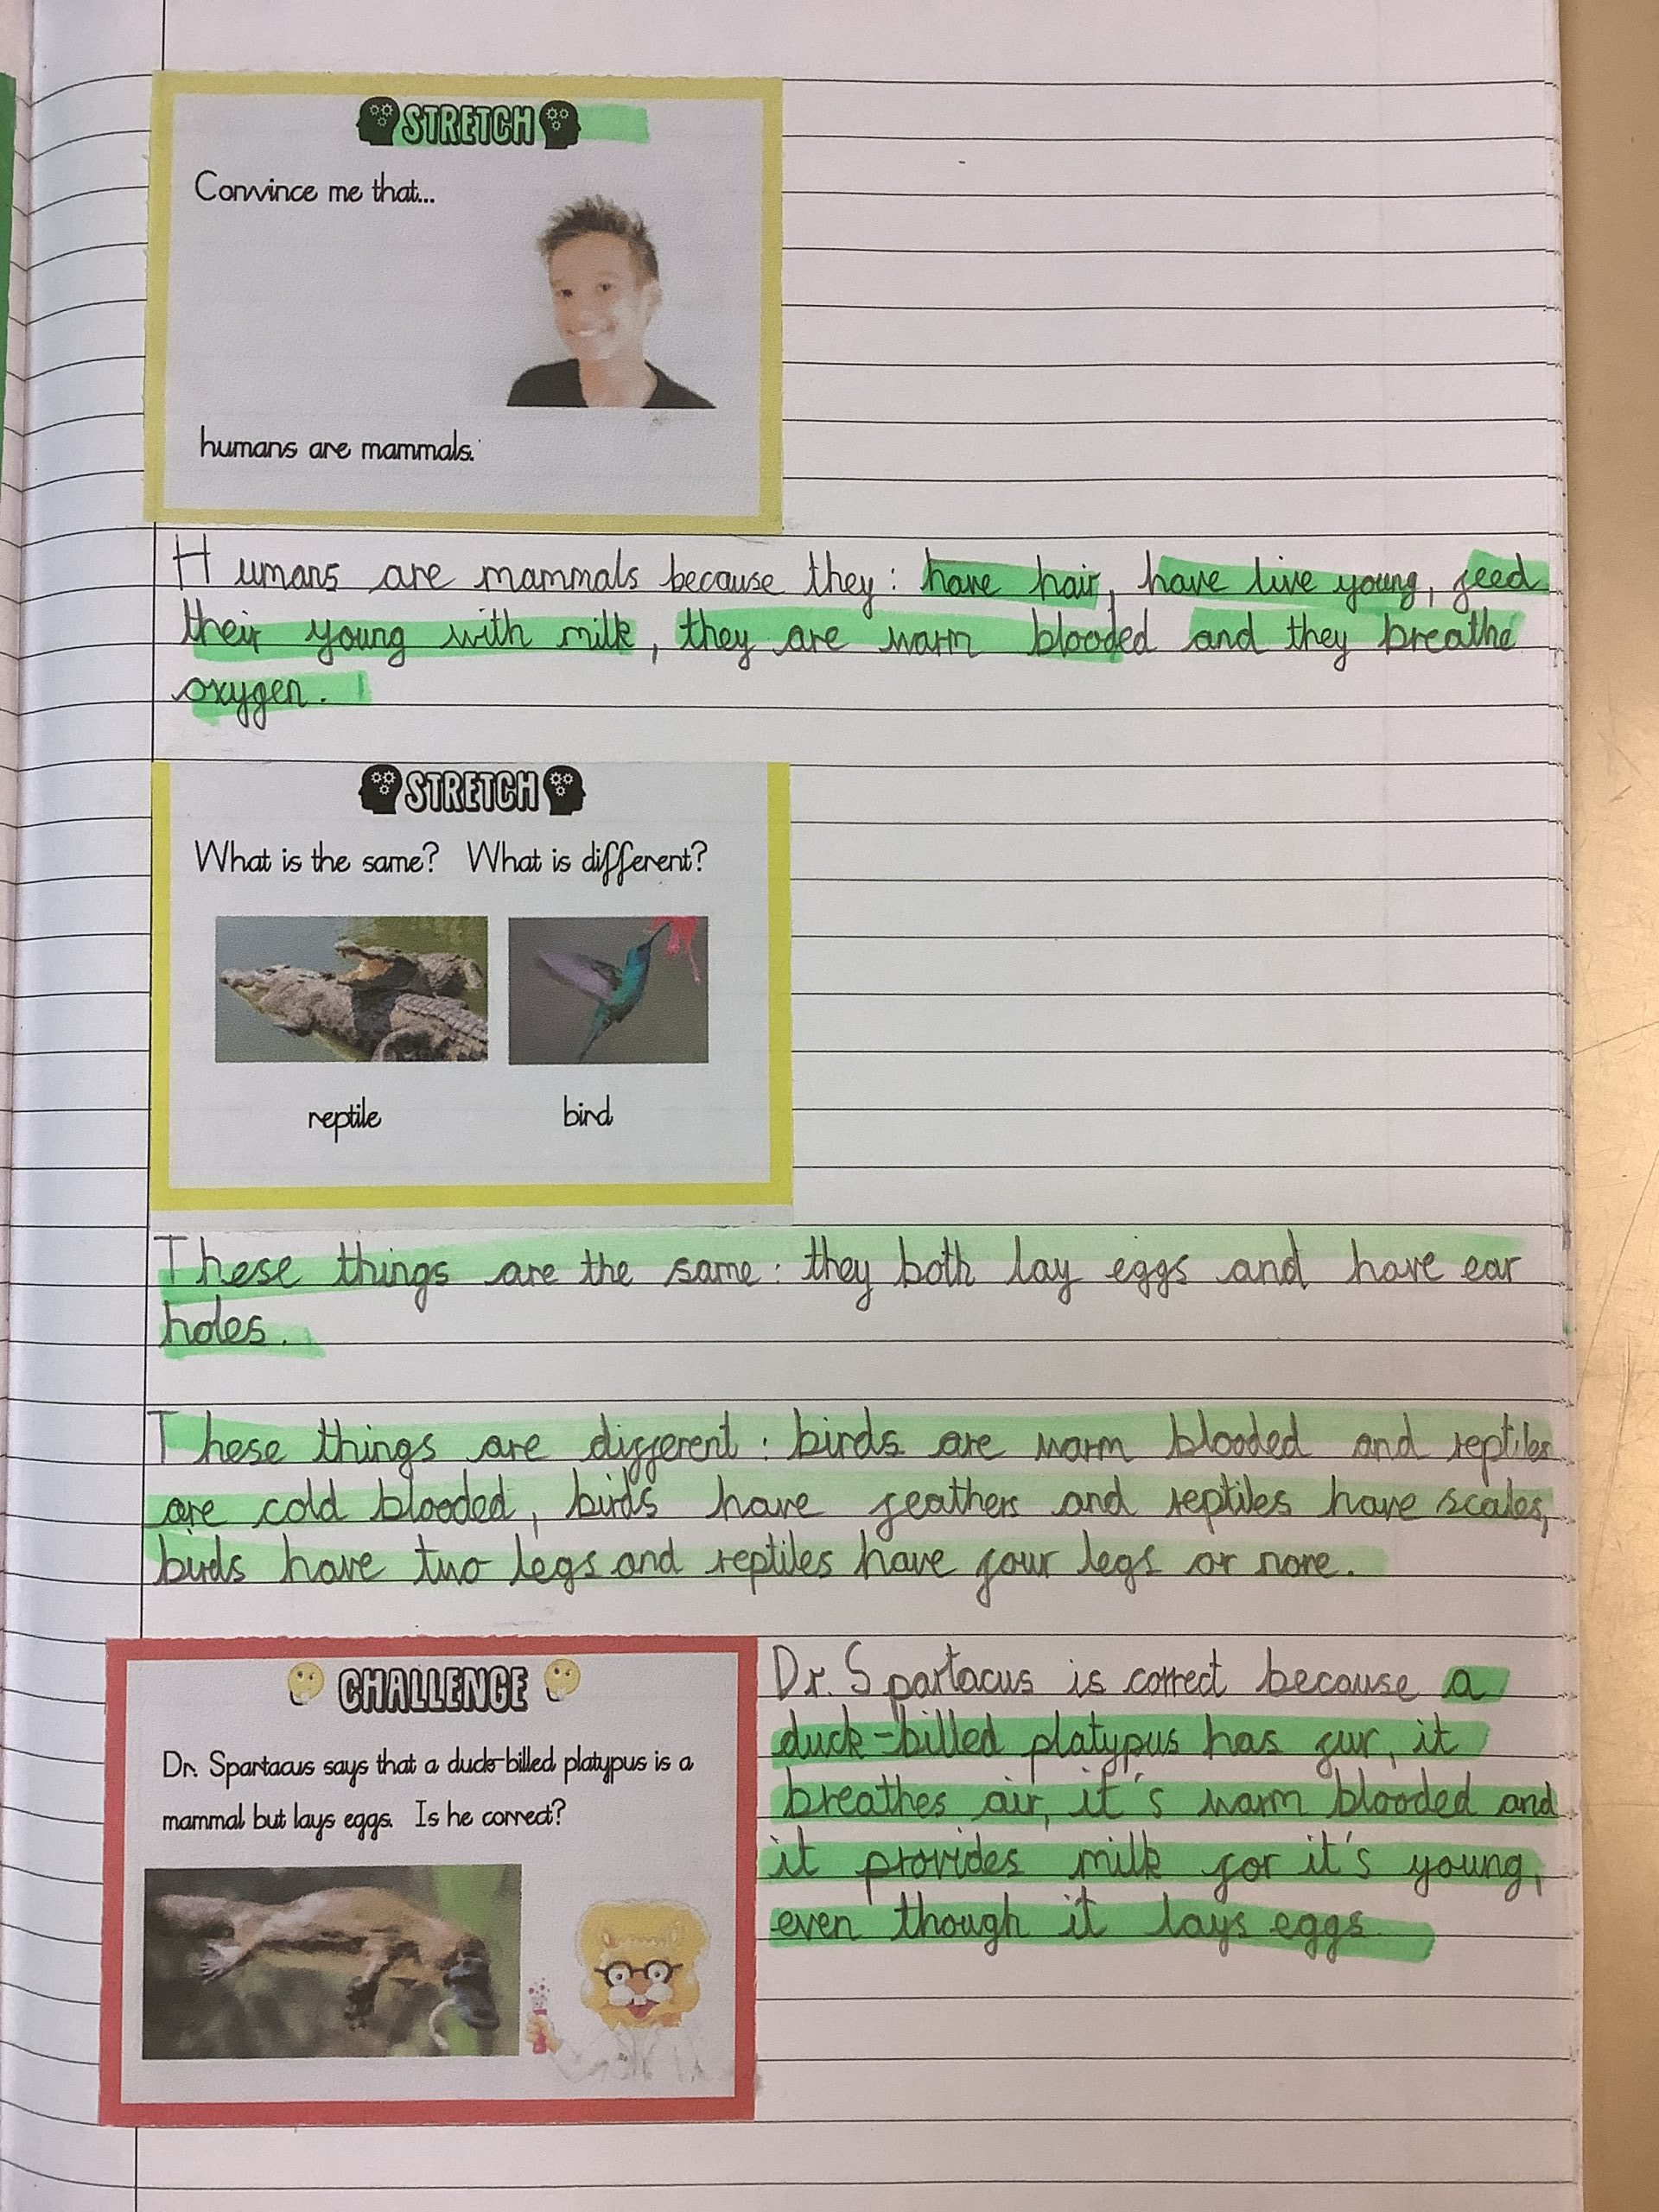 STRETCH
Convince me that...
humans are mammals.
Humans are mammals because they: have hair, have live young, feed
their young with milk, they are warm blooded and they breathe
oxygen.
STRETCH
What is the same? What is different?
reptile bird
These things are the same: they both lay eggs and have ear
holes.
These things are different: birds are warm blooded and reptiles
are cold blooded, birds have feathers and reptiles have scales,
birds have two legs and reptiles have four legs or none.
CHALLENGE
Dr. Spartacus says that a duck-billed platypus is a
mammal but lays eggs. Is he correct?
Dr. Spartacus is correct because a
duck-billed platypus has fur, it
breathes air, it's warm blooded and
it provides milk for it's young,
even though it lays eggs.